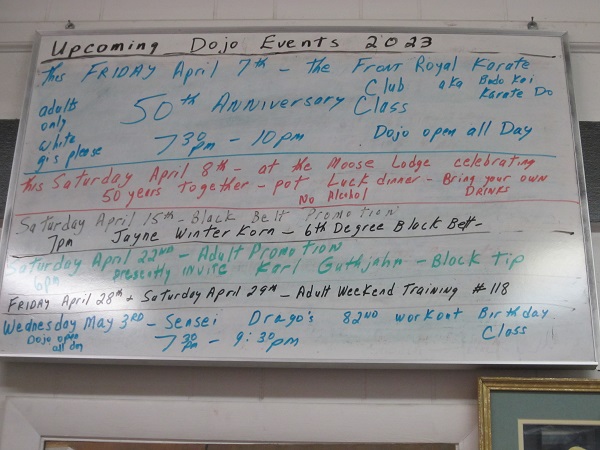 Upcoming Dojo Events 2023
This FRIDAY April 7th - the Front Royal Karate
Club aka Budo Kai
Karate Do
adults
only
white
gis please
50th Anniversary Class
7 30 pm - 10pm Dojo open all Day
This Saturday April 8th - at the Moose Lodge celebrating
50 years together - pot Luck dinner - Bring your own
No Alcohol DRINKS
Saturday April 15th - Black Belt Promotion
7pm Jayne Winter Korn - 6th Degree Black Belt -
Saturday April 22nd - Adult Promotion
6pm presently invite Karl Guthjahn - Black Tip
FRIDAY April 28th + Saturday April 29th - Adult Weekend Training #118
Wednesday May 3RD - Sensei Drago's 82ND workout Birthday
Dojo open
all day
7 30 pm - 9:30pm Class